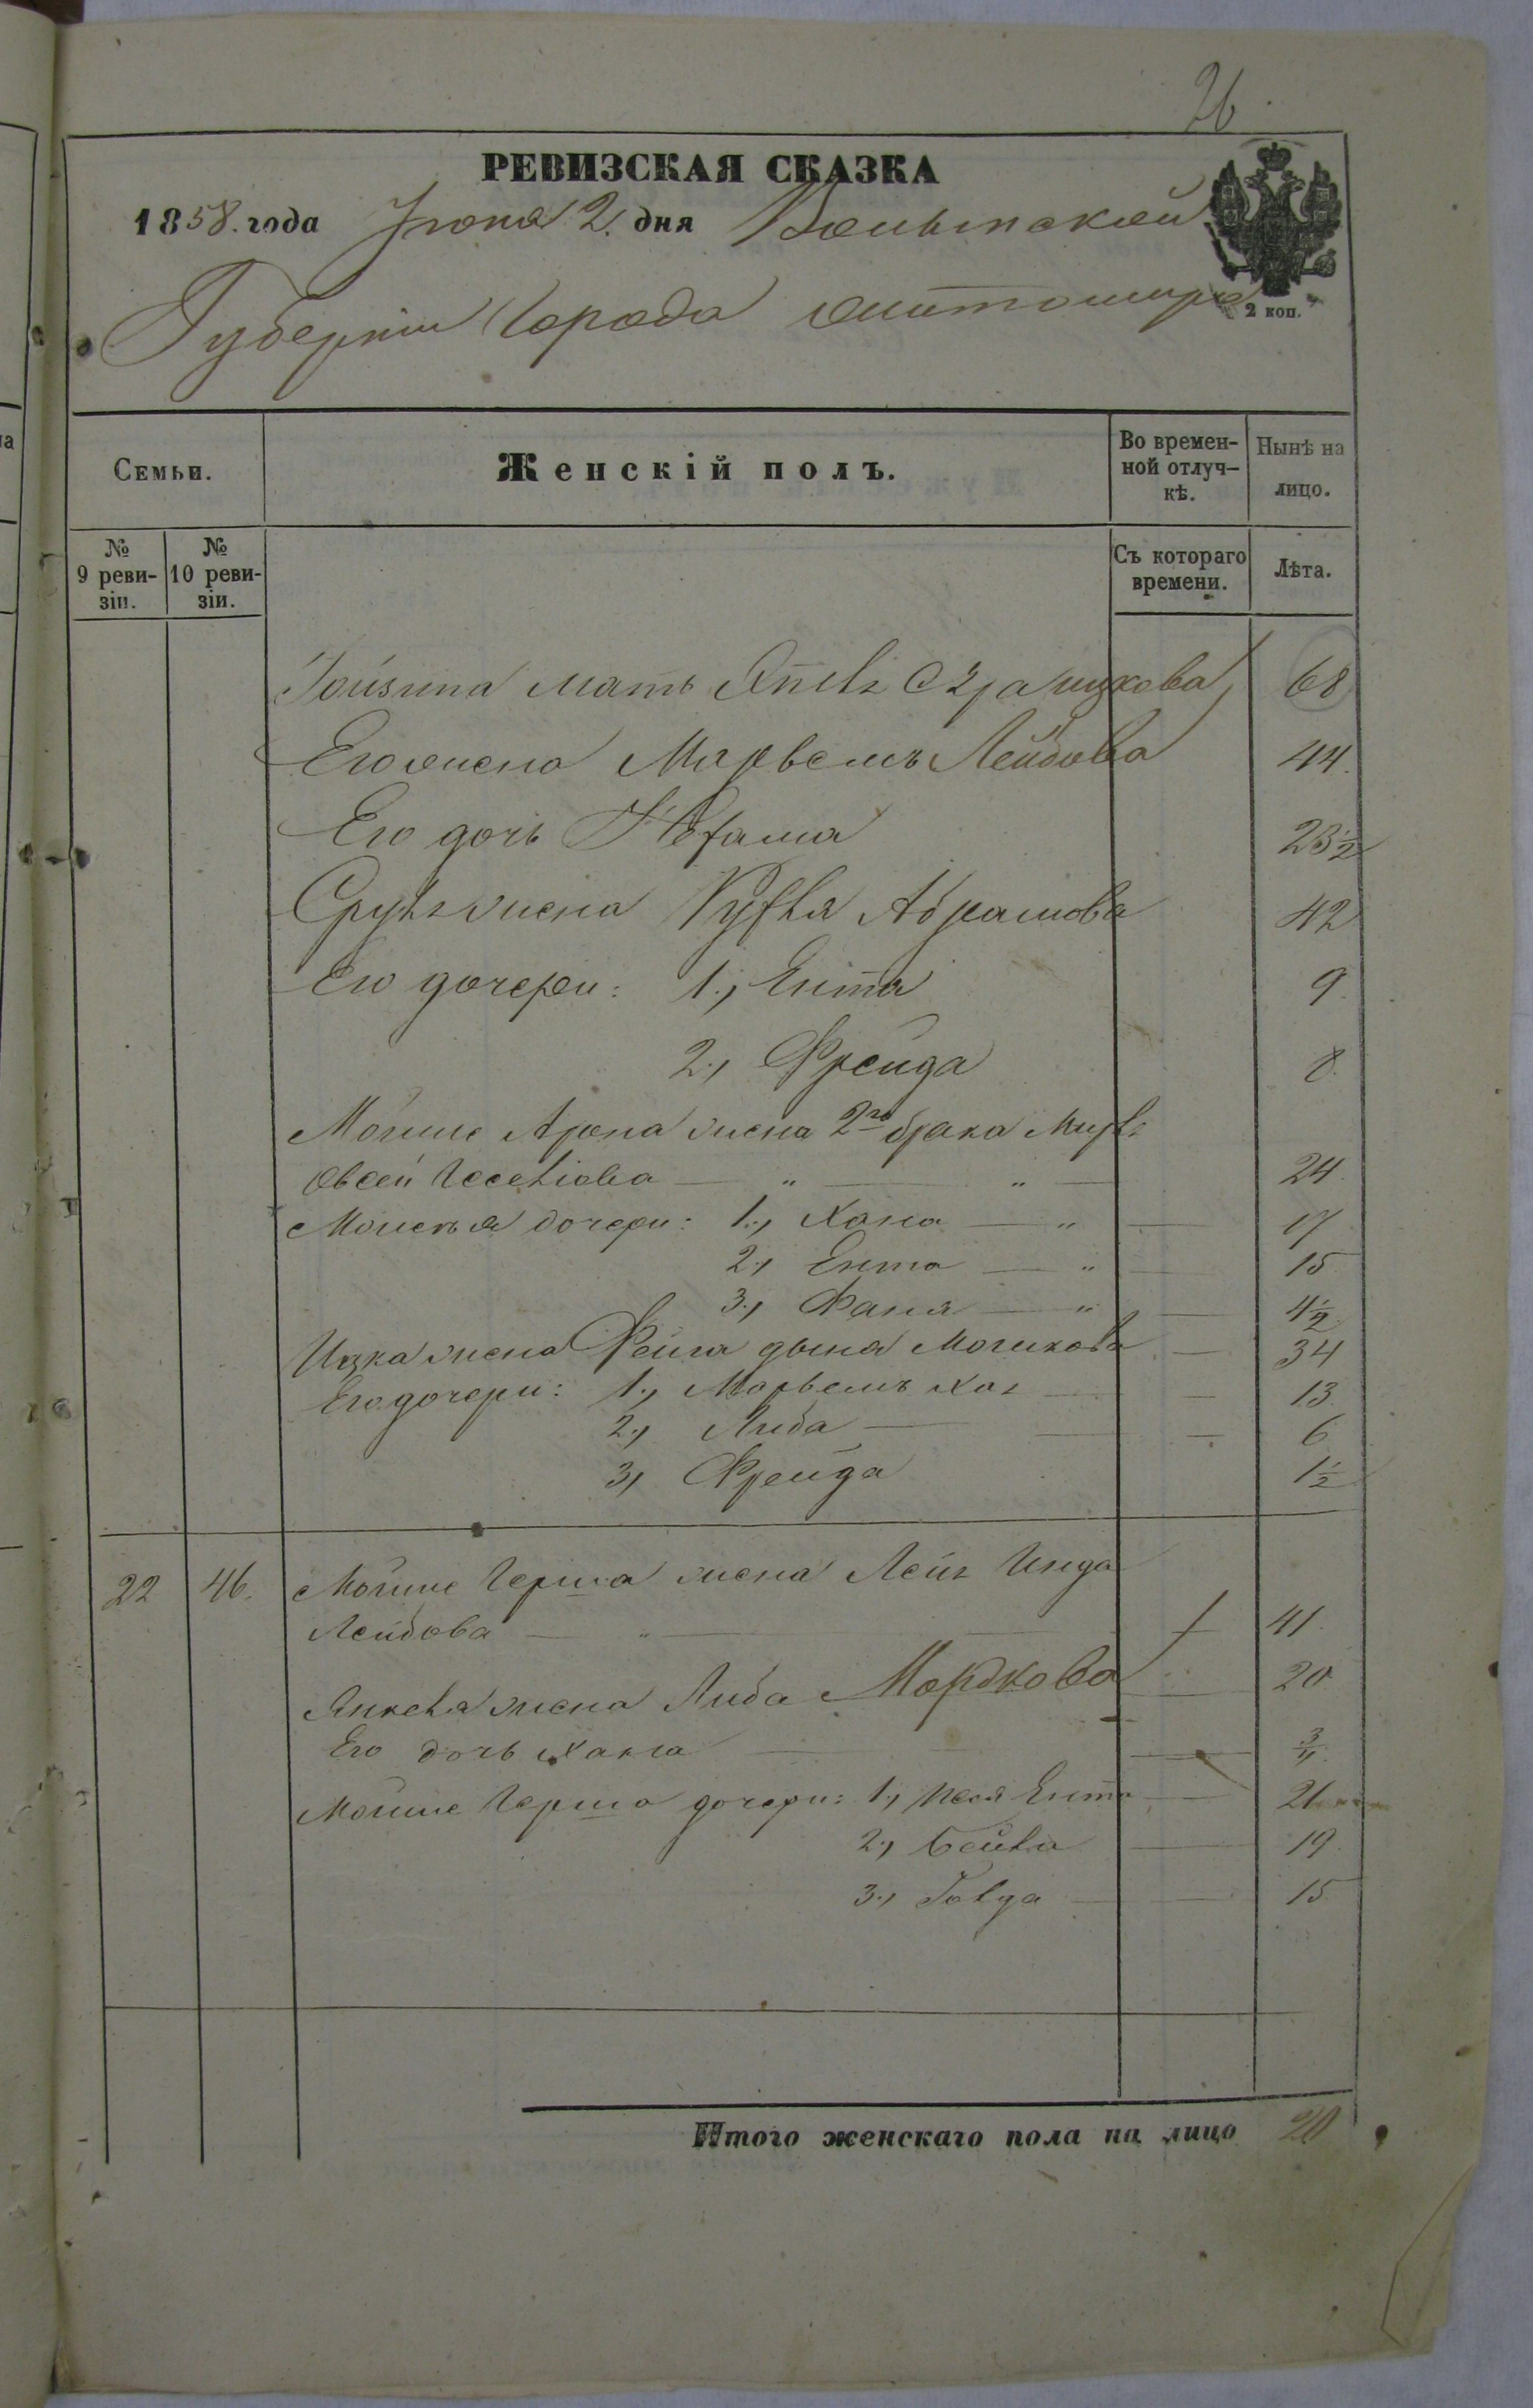 26.
РЕВИЗСКАЯ СКАЗКА
1858. года Іюня 2. дня Волынской
Губерніи Города Житомира
2 коп.
Семьи.
Женскій полъ.
Во времен-
ной отлуч-
кѣ.
Нынѣ на
лицо.
№
9 реви-
зіи.
№
10 реви-
зіи.
Съ котораго
времени.
Лѣта.
мать 68
Его жена Лейбова 44.
Его дочь 23½
Сруля жена Абрамова 42
Его дочери: 1., Ента 9.
2., Фрейда 8.
Мойше Арона жена 2го брака
24
дочери: 1., Хана — " — 17
2., Ента — " — 15
3., Фаня — " — 4½
Ицка жена Фейга Мошкова — 34
Его дочери: 1., — 13.
2., Либа — 6
3, Фрейда 1½
22 46. Мойше Герша жена
Лейбова — " — 41.
Янкеля жена Либа Мордкова 20
Его дочь
Мойше Герша дочери: 1., Песя Ента — 21
2., Бейла — 19.
3., Голда — 15
Итого женскаго пола на лицо 20